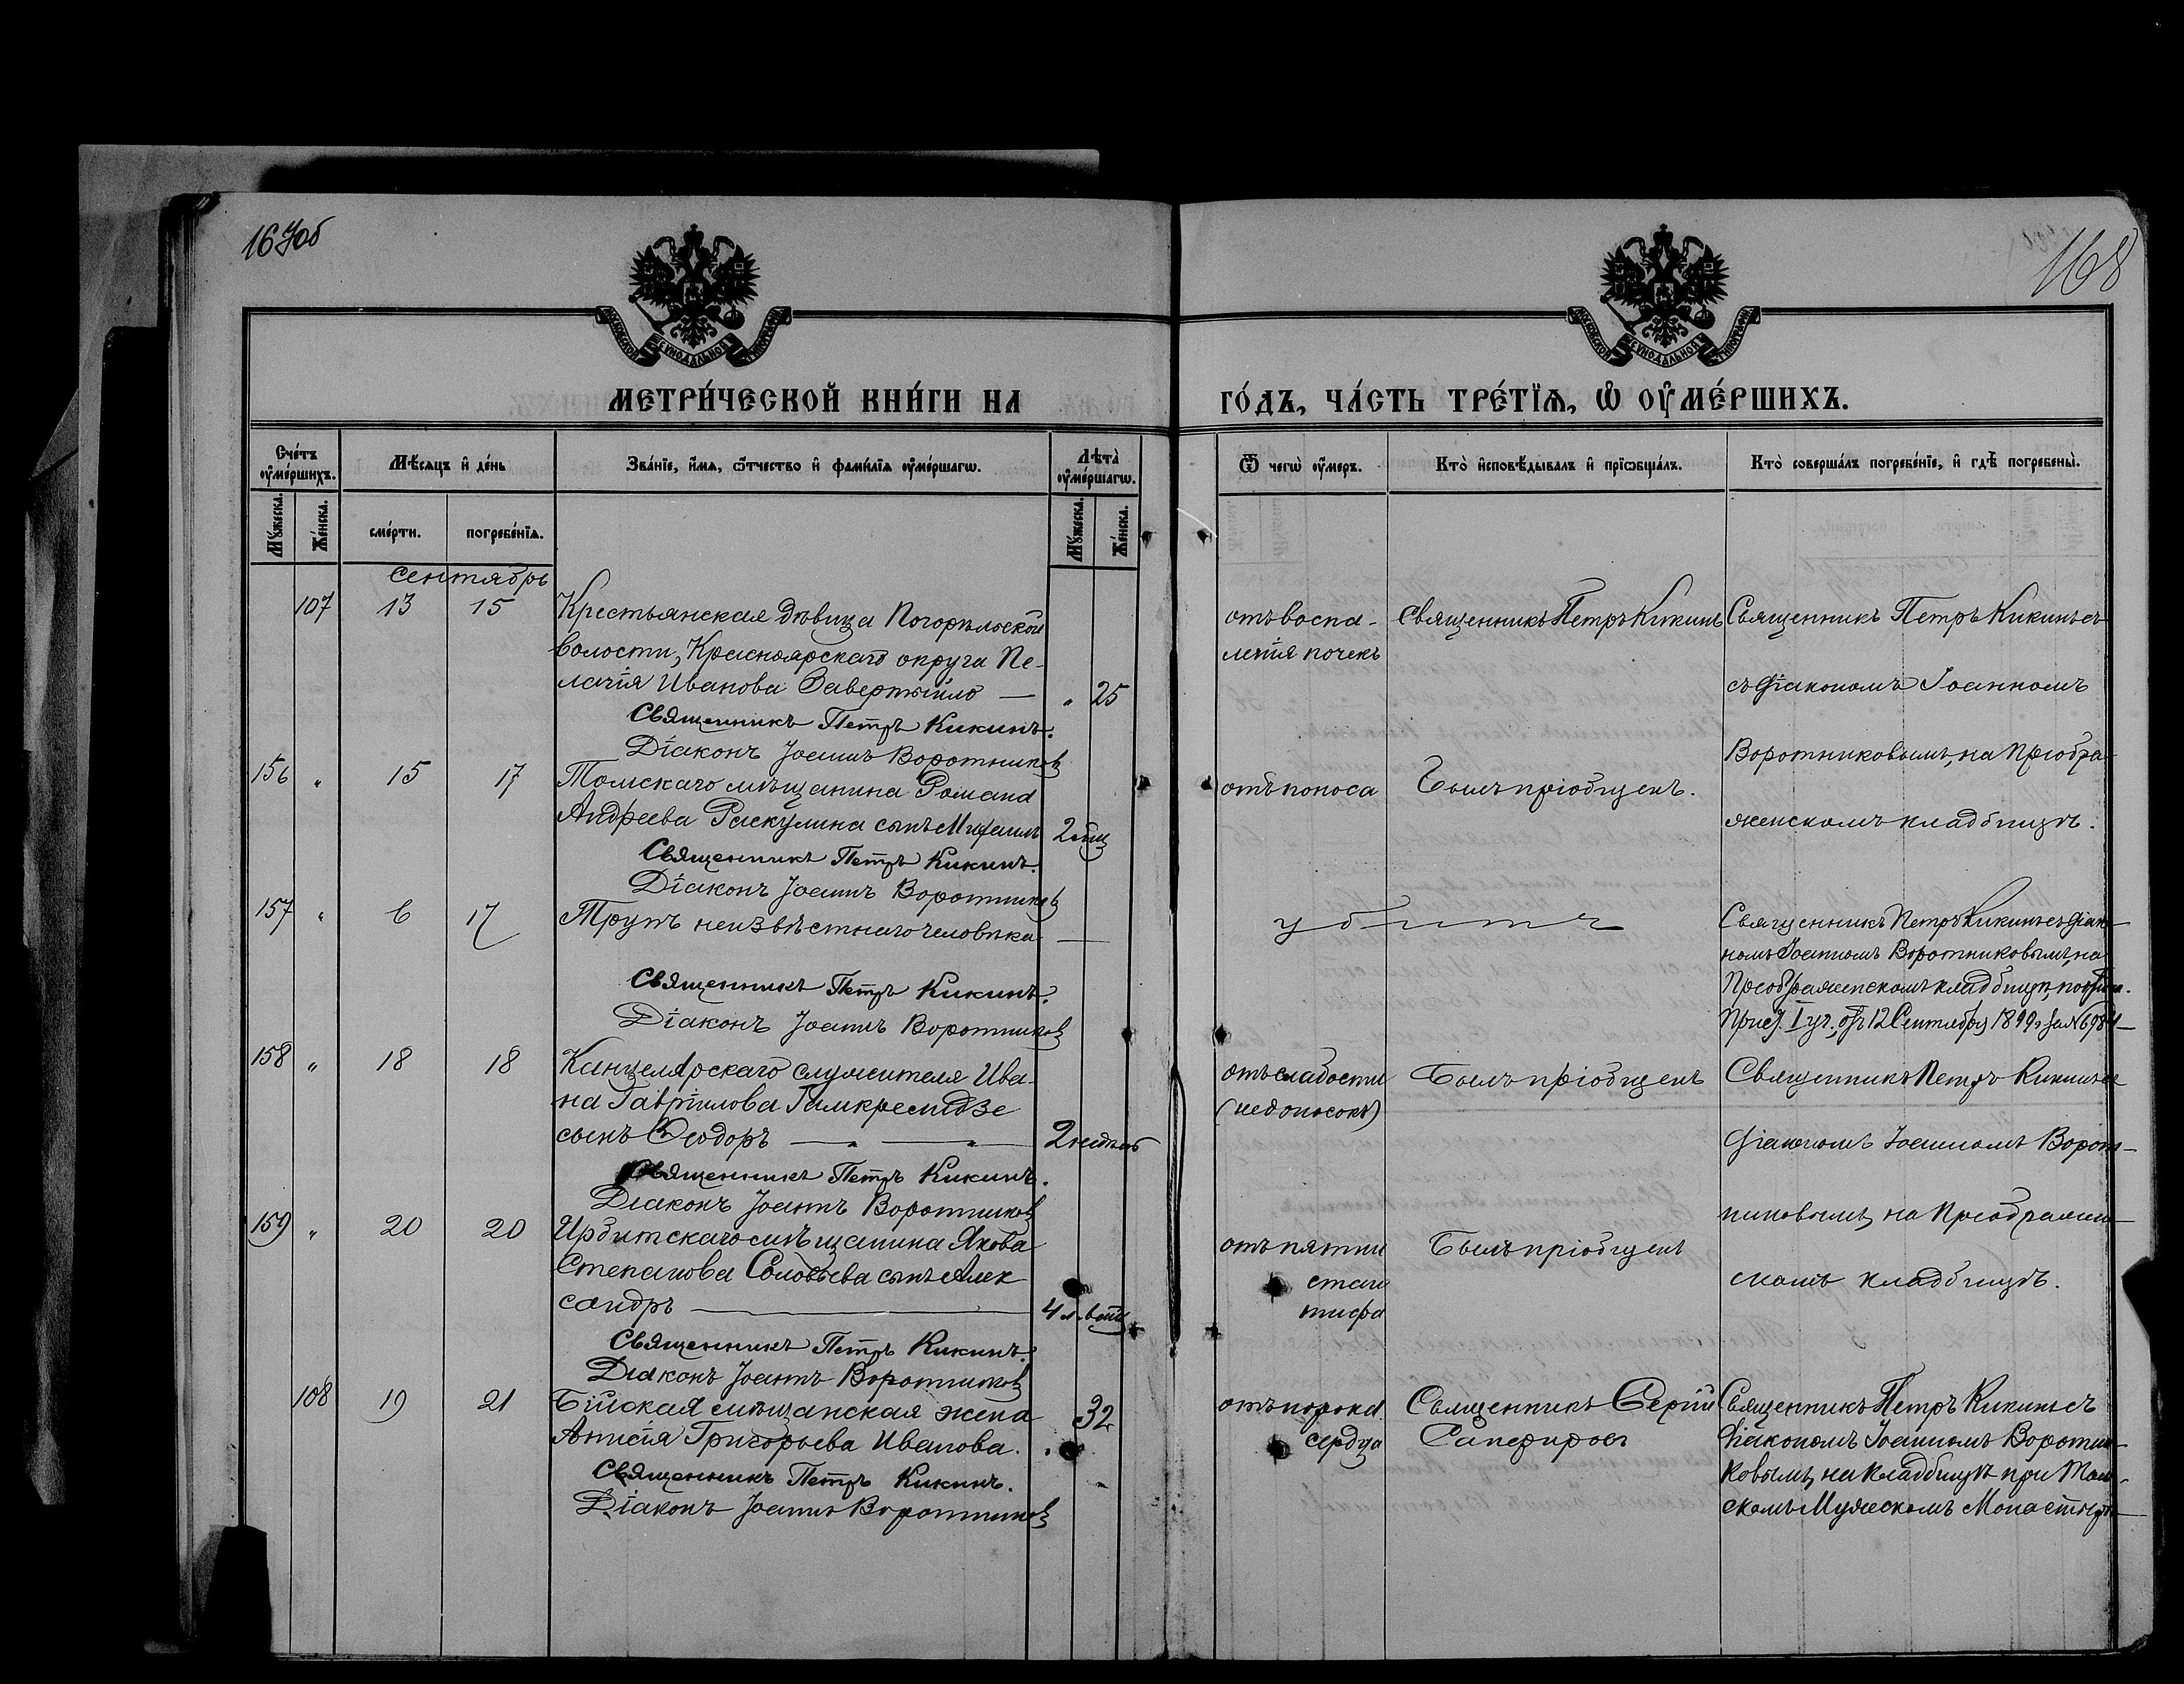 168
МЕТРИ́ЧЕСКОЙ КНИ́ГИ НА
ГО́ДЪ, ЧА́СТЬ ТРЕ́ТІЯ, Ѡ ОУМЕ́РШИХЪ.
Сче́тъ оумершихъ.
Мѣсяцъ и де́нь
Зва́ніе, и́мя, ѻтчество и фами́лія оуме́ршагѡ.
Лѣта̀ оуме́ршагѡ.
Ѿ чегѡ̀ оумеръ.
Кто̀ исповѣдывалъ и прїѡбща́лъ.
Кто̀ соверша́лъ погребе́ніе, и гдѣ погребены̀.
Мꙋжеска.
Же́нска.
сме́рти.
погребе́нія.
Мꙋжеска.
Же́нска.
Сентябрь
107 13 15 Крестьянская дѣвица Погорѣльской
волости, Красноярскаго округа Пе-
лагія Иванова Завертяйло — „ 25
Священникъ Петръ Кикинъ.
Діаконъ Іоаннъ Воротниковъ
отъ воспа-
ленія почекъ
Священникъ Петръ Кикинъ
Священникъ Петръ Кикинъ съ
съ діакономъ Іоанномъ
Воротниковымъ, на Преобра-
женскомъ кладбищѣ.
156 „ 15 17 Томскаго мѣщанина Романа
Андреева Раскулина сынъ Михаилъ 2 мѣс
Священникъ Петръ Кикинъ.
Діаконъ Іоаннъ Воротниковъ
отъ поноса
Былъ пріобщенъ.
157 „ 6 17 Трупъ неизвѣстнаго человѣка —
Священникъ Петръ Кикинъ.
Діаконъ Іоаннъ Воротниковъ
убитъ
Священникъ Петръ Кикинъ съ діако-
номъ Іоанномъ Воротниковымъ, на
Преображенскомъ кладбищѣ,
1 уч. отъ 12 Сентября 1899 г за №
158 „ 18 18 Канцелярскаго служителя Ива-
на Гавріилова Гамкрелидзе
сынъ Ѳеодоръ — „ — 2 недѣль
Священникъ Петръ Кикинъ.
Діаконъ Іоаннъ Воротниковъ
отъ слабости
(недоносокъ)
Былъ пріобщенъ
Священникъ Петръ Кикинъ съ
діакономъ Іоанномъ Ворот-
никовымъ, на Преображен-
скомъ кладбищѣ.
159 „ 20 20 Ирбитскаго мѣщанина Якова
Степанова Соловьева сынъ Алек
сандръ — 4 л.
Священникъ Петръ Кикинъ.
Діаконъ Іоаннъ Воротниковъ
отъ пятни
стаго
тифа
Былъ пріобщенъ
108 19 21 Бійская мѣщанская жена
Анисія Григорьева Иванова. „ 32
Священникъ Петръ Кикинъ.
Діаконъ Іоаннъ Воротниковъ
отъ порока
сердца
Священникъ Сергій
Сапфировъ
Священникъ Петръ Кикинъ съ
діакономъ Іоанномъ Воротни-
ковымъ, на кладбищѣ при Том-
скомъ Мужескомъ Монастырѣ